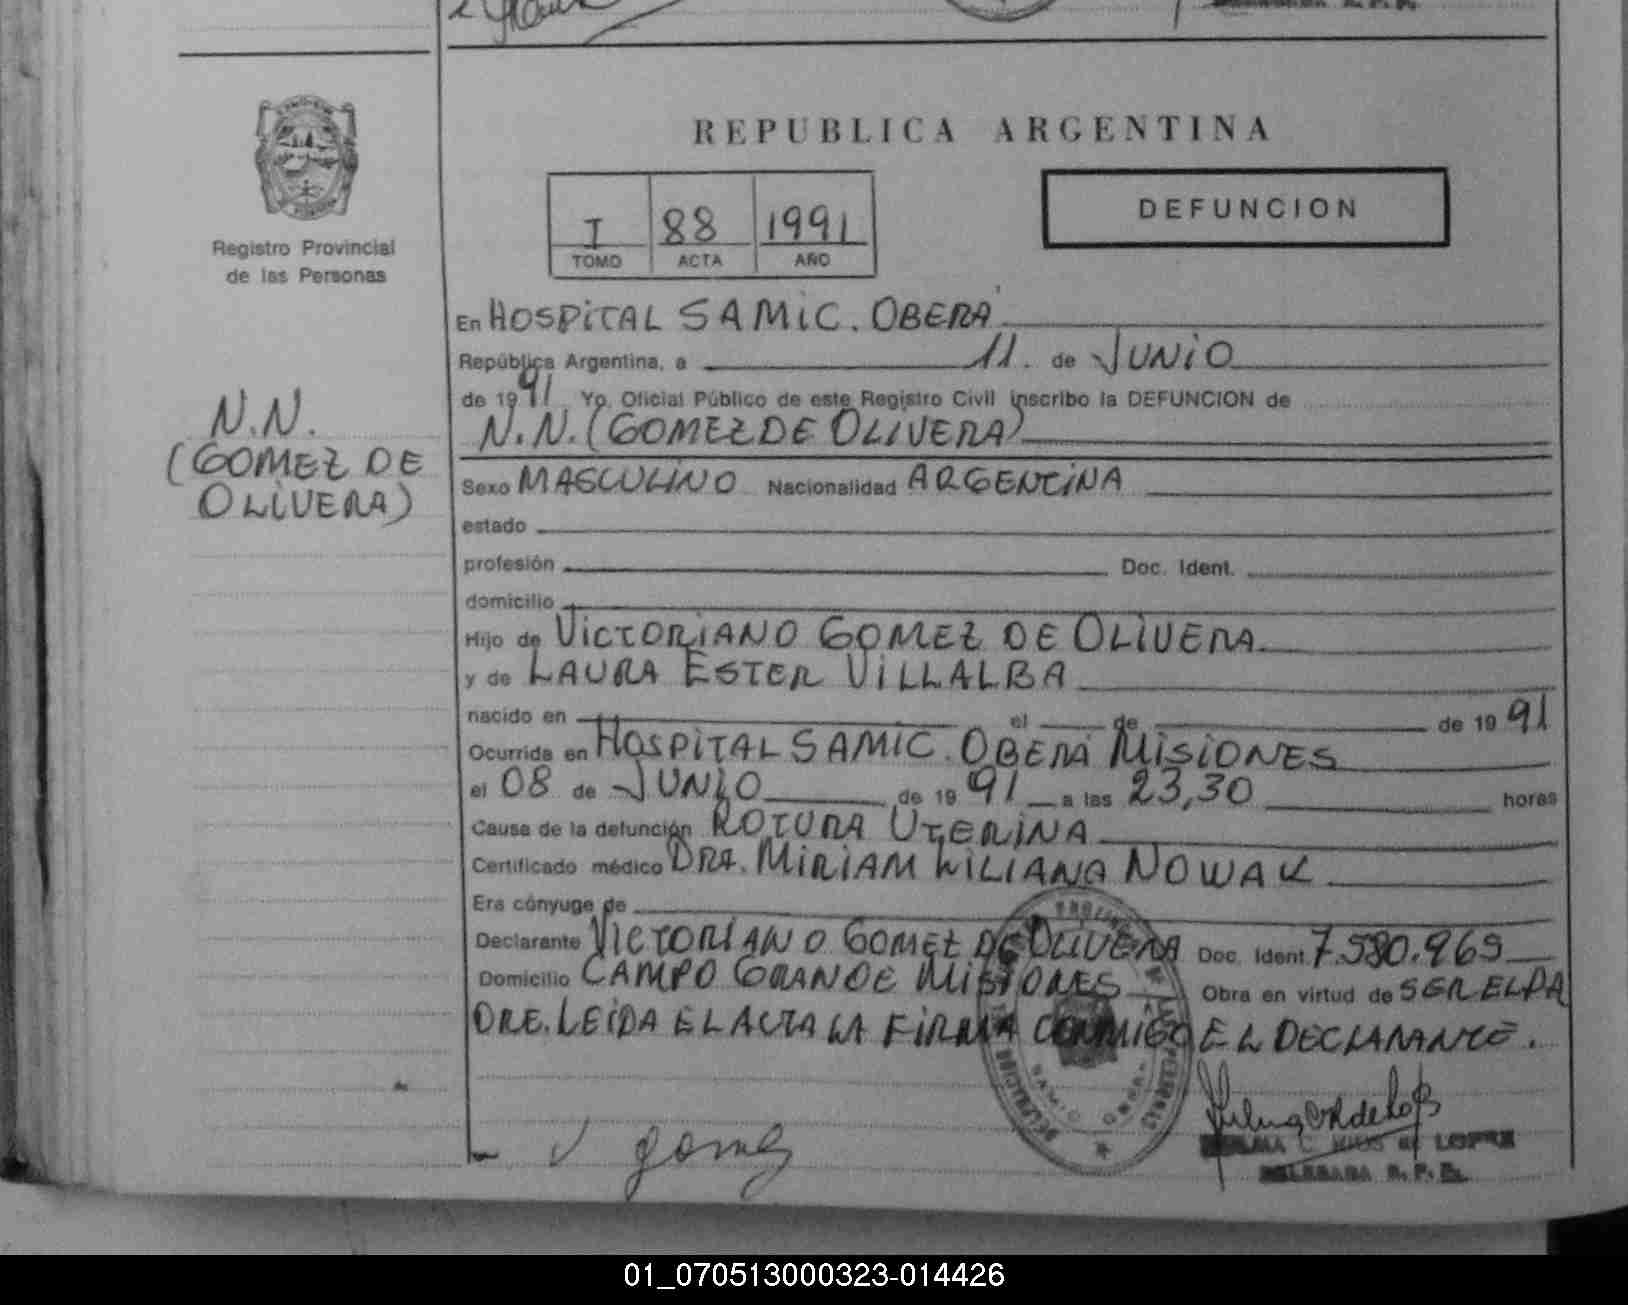 REPUBLICA ARGENTINA
I 88 1991
TOMO ACTA AÑO
DEFUNCION
Registro Provincial
de las Personas
N.N.
(GOMEZ DE
OLIVERA)
En HOSPITAL SAMIC. OBERÁ
República Argentina, a 11. de JUNIO
de 1991 Yo, Oficial Público de este Registro Civil inscribo la DEFUNCION de
N.N. (GOMEZ DE OLIVERA)
Sexo MASCULINO Nacionalidad ARGENTINA
estado
profesión Doc. Ident.
domicilio
Hijo de VICTORIANO GOMEZ DE OLIVERA
y de LAURA ESTER VILLALBA
nacido en el de de 1991
Ocurrida en HOSPITAL SAMIC. OBERÁ MISIONES
el 08 de JUNIO de 1991 a las 23,30 horas
Causa de la defunción ROTURA UTERINA
Certificado médico DRA. MIRIAM LILIANA NOWAK
Era cónyuge de
Declarante VICTORIANO GOMEZ DE OLIVERA Doc. Ident. 7.580.969
Domicilio CAMPO GRANDE MISIONES Obra en virtud de SER EL PA
DRE. LEIDA EL ACTA LA FIRMA CONMIGO EL DECLARANTE.
V gomez
LOPEZ
DELEGADA R.P.P.
01_070513000323-014426